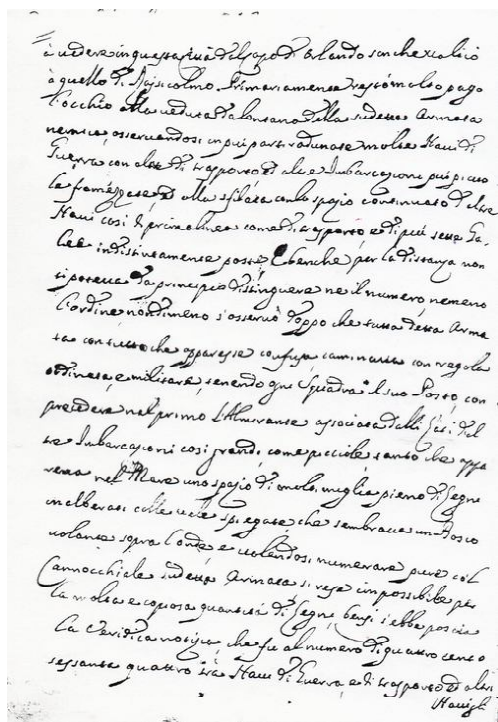 à vedere in questa Città del Capo di Orlando sin che ualicò
à quello di Rasicolmo. Primieramente restò molto pago
l'occhio alla ueduta da lontano della sudetta Armata
nemica, osseruandosi in più parti radunate molte Naui di
Guerra con altre di trasporto ed altre Imbarcazioni più picciole
le framezzate, ed alla sfilata con lo spazio continuato d'altre
Naui così di prima linea come di trasporto, e di più sette Ga-
lee indistintamente poste. E benche per la distanza non
si poteua da principio distinguere ne il numero, nemeno
l'ordine, nondimeno s'osseruò doppo che tutta detta Arma
ta con tutto che apparesse confusa caminaua con regola
ordinata, e militare, tenendo ogni Squadra il suo Posto, con
precedere nel primo l'Almirante associata dalli Capi del
te Imbarcazioni così grandi, come picciole, tanto che appa
reua nel Mare uno spazio di molte miglia pieno di Legni
inalberati colle uele spiegate, che sembraua un Bosco
uolante sopra l'onde, e uolendosi numerare pure col
Cannocchiale sudetta Armata si rese impossibile per
la molta e copiosa quantità di Legni, bensì s'ebbe poscia
la veridica notizia, che fu al numero di quattro cento
sessanta quattro trà Naui di Guerra, e di trasporto ed altri
Nauigli